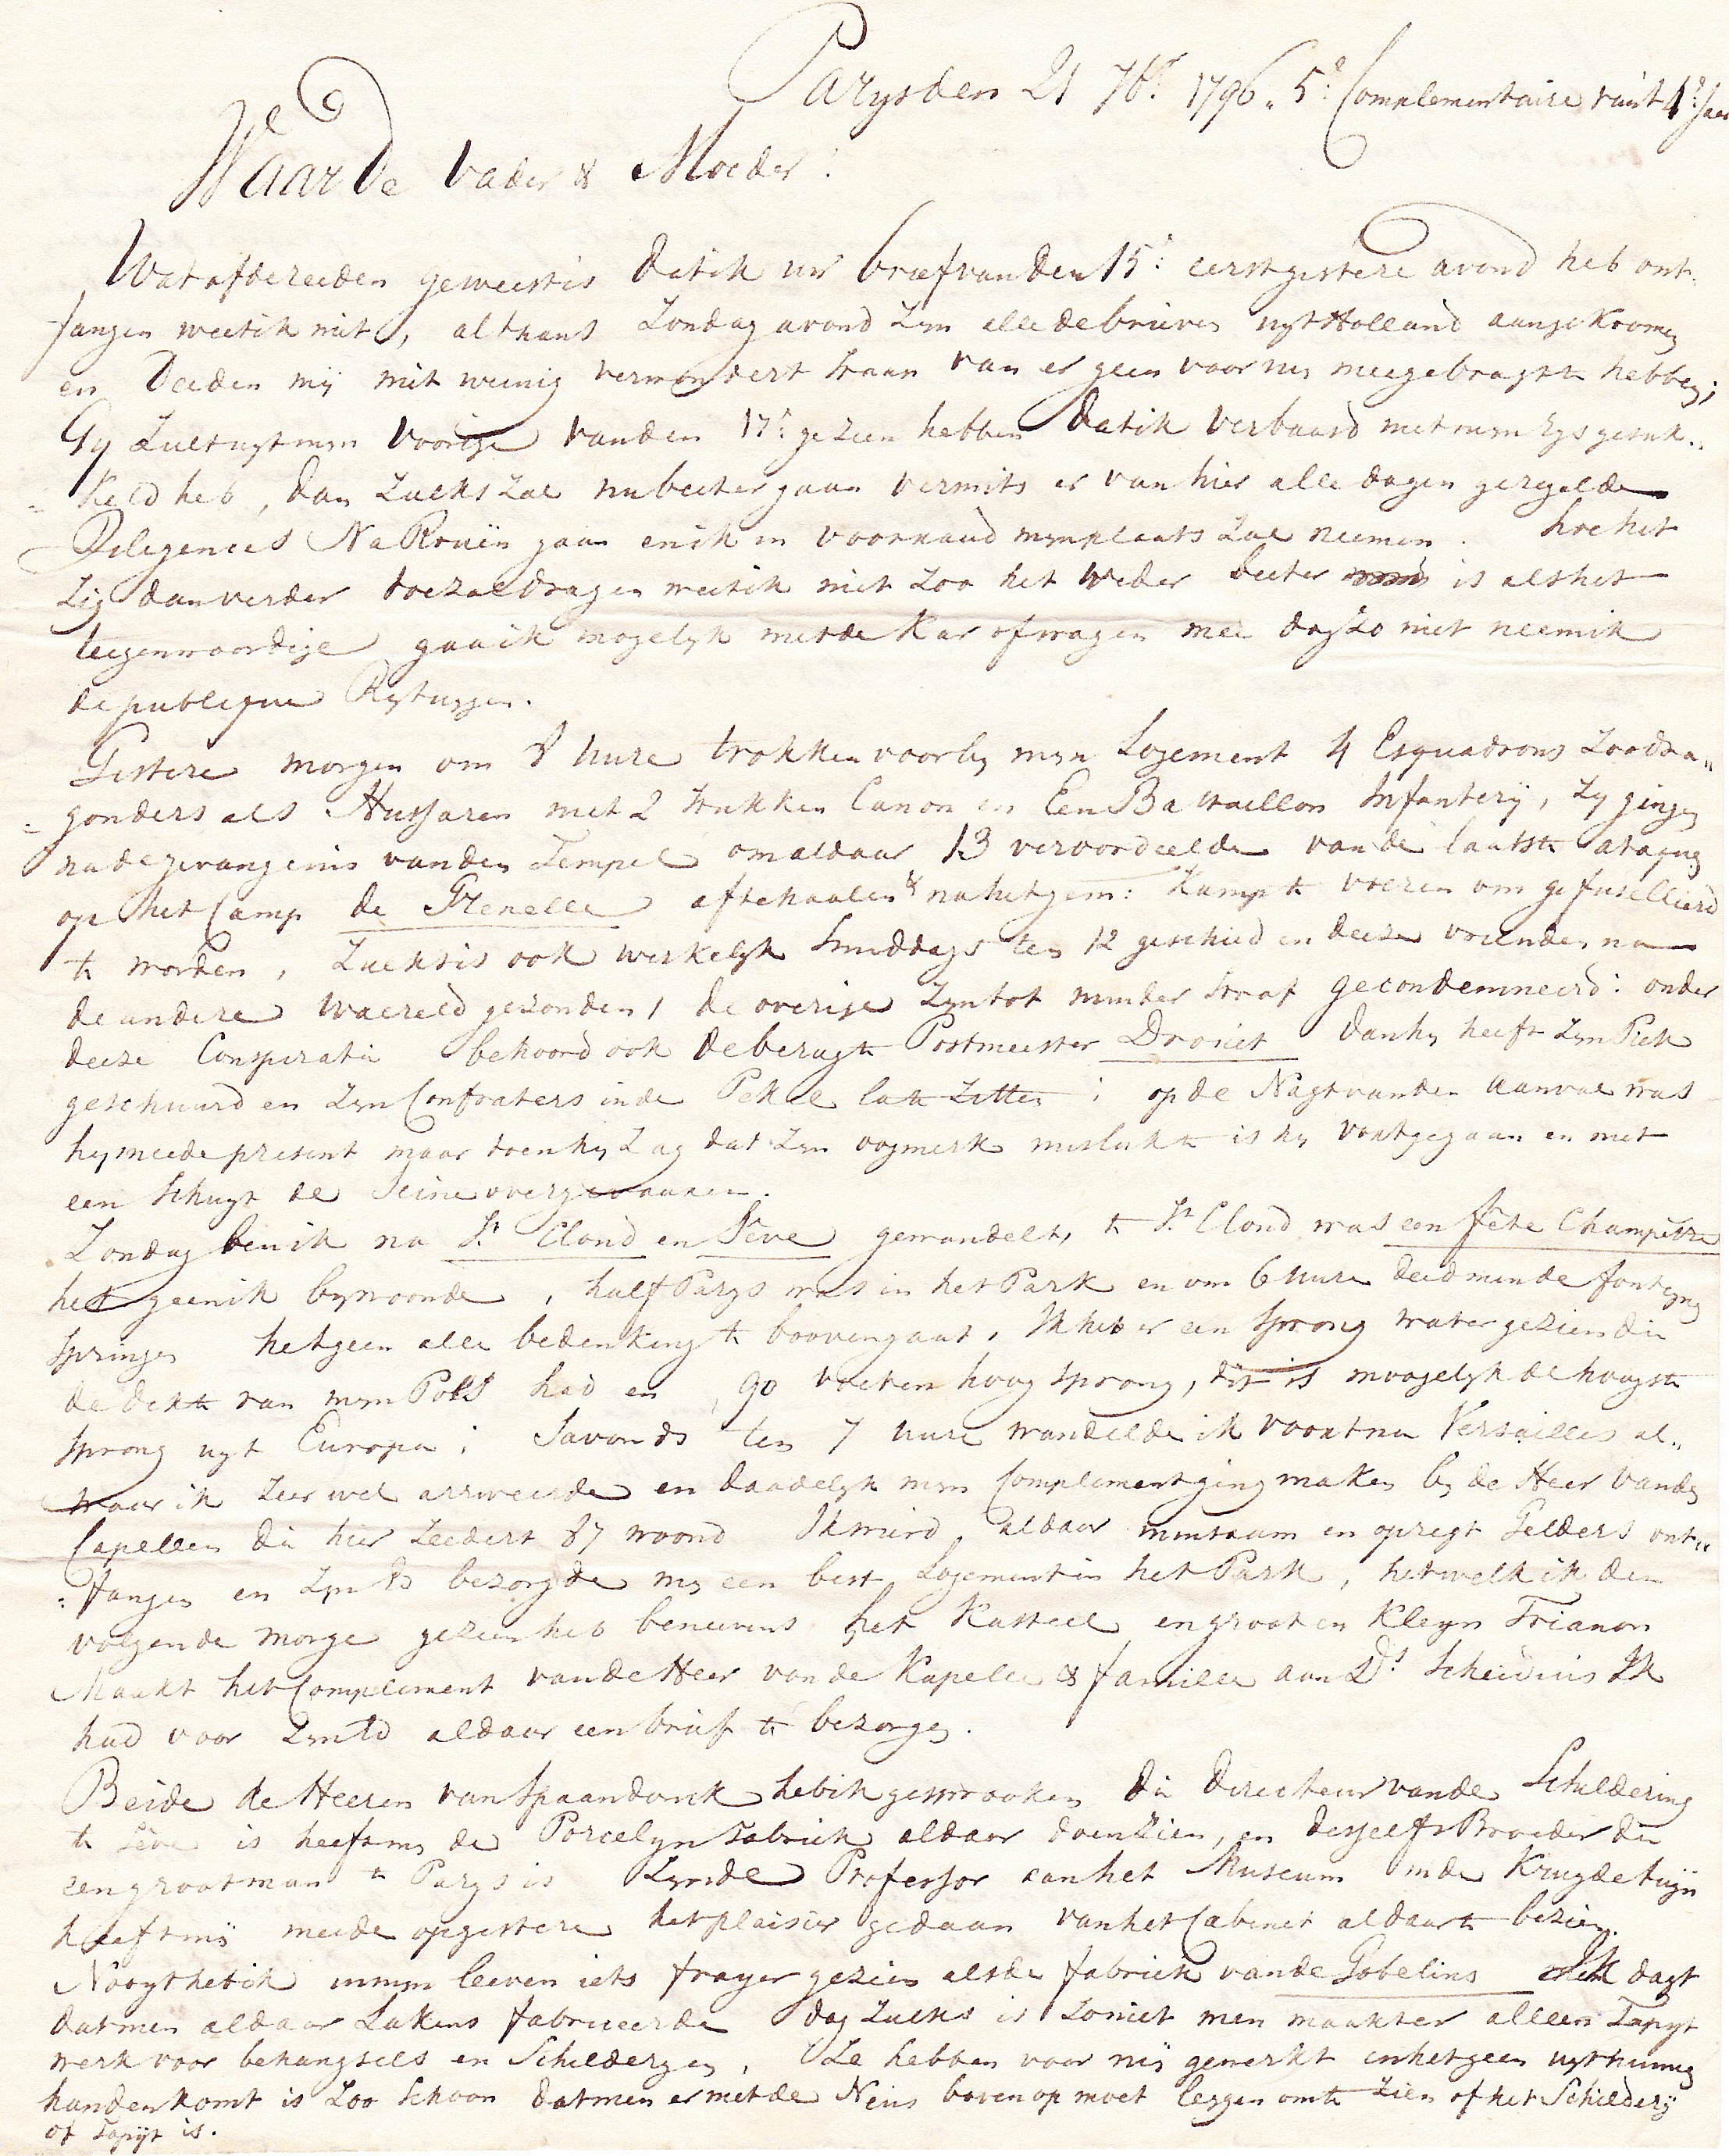 Parys den 21 7br. 1796. 5e. Complementaire van't 4e. Jaar
Waarde Vader & Moeder!
Wat af de reeden geweest is dat ik uw brief van den 15e. eerstgistere avond heb ont-
fangen weet ik niet, althans Zondag avond zyn alle de brieven uyt Holland aangekoomen
en deeden mij niet weinig verwondert staan van er geen voor my meegebragt te hebben;
Gy zult uyt myn voorige van den 17e. gezien hebben dat ik verbaasd met myn rys gesuk..
= keld heb, dan zulks zal nu beeter gaan vermits er van hier alle dagen geregelde
Deligences Na Rouën gaan en ik in voorraad myn plaats zal neemen. hoe het
zig dan verder toe zal dragen weet ik niet zoo het weder beeter is als het
teegenwoordige gaa ik mogelyk met de kar of wagen mee dog zo niet neem ik
de publique Rytuygen.
Gistere morgen om 8 uure trokken voorby myn Logement 4 Esquadrons zoo dra"
= gonders als Hussaren met 2 stukken Canon en Een Battaillon Infanterij, zy gingen
na de gevangenis van den Tempel om aldaar 13 veroordeelde van de laatste ataque
op het Camp de Grenelle af te haalen & na het gem: Kamp te voeren om gefusilleerd
te worden, zulks is ook werkelyk smiddags ten 12 geschied en deeze vrienden na
de andere Waereld gezonden, de overige zyn tot minder straf gecondemneerd: onder
deeze Conspiratie behoord ook de berugte Postmeester Drouet dan hy heeft zyn Piek
geschuurd en zyn Confraters in de Pekel late zitten; op de Nagt van den aanval was
hy meede present maar toen hy zag dat zyn oogmerk mislukte is hy voortgegaan en met
een schuyt de Seine overgevaaren.
Zondag ben ik na St. Cloud en Sève gewandelt, te St. Cloud was een fête Champêtre
het geen ik bywoonde, half Parys was in het Park en om 6 uure deed men de fonteyne
springen het geen alle bedenking te booven gaat, Ik heb er een sprong water gezien die
de dikte van myn Pols had en 90 voeten hoog sprong, dit is moogelyk de hoogste
sprong uyt Europa; Savonds ten 7 uure wandelde ik voort na Versailles al"
waar ik zeer wel arriveerde en daadelyk myn Compliment ging maken by de Heer vande
Capellen die hier zeedert 87 woond Ik wierd aldaar minzaam en opregt Gelders ont"
: fangen en zyn Ed bezorgde my een best Logement in het Park, het welk ik den
volgende morge gezien heb beneevens het Kasteel en groot en kleyn Trianon
Maakt het Compliment van de Heer van de Kapelle & familie aan Ds. Scheidius Ik
had voor zyn Ed aldaar een brief te bezorgen.
Beide de Heeren van Spaandonck heb ik gesprooken die Directeur van de Schildering
te Sève is heeft my de Porcelyn Fabriek aldaar doen zien, en deszelfs Broeder die
een groot man te Parys is zynde Professor aan het Museum in de Kruydetuyn
heeft mij meede opgistere het plaisir gedaan van het Cabinet aldaar te bezien.
Nooyt heb ik in myn leeven iets frayer gezien als de fabriek van de Gobelins Ik dagt
dat men aldaar Lakens fabriceerde dog zulks is zo niet men maakt er alleen Tapyt
werk voor behangsels en Schilderyen, Ze hebben voor mij gewerkt en het geen uyt hunne
handen komt is zoo schoon dat men er met de Neus boven op moet leggen om te zien of het Schilderij
of Tapijt is.